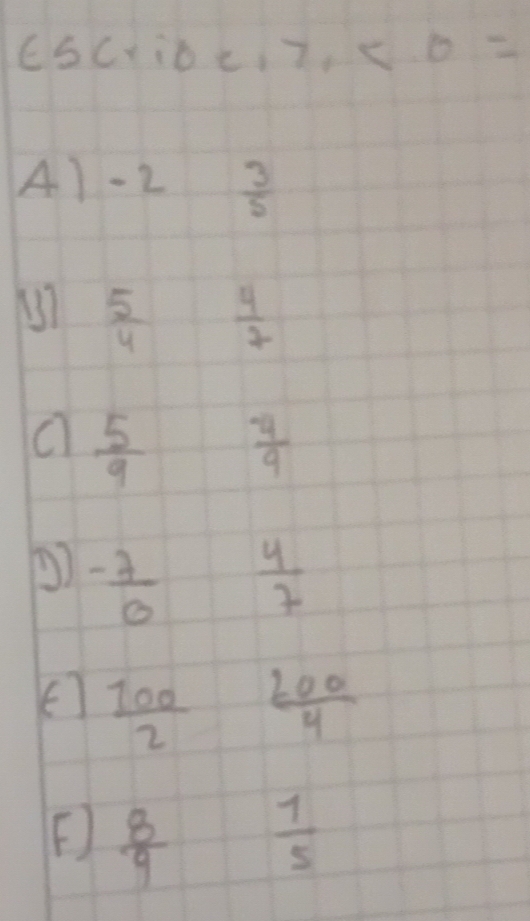 Escribe, >, < o =
A) -2 3/5
B) 5/4 4/7
C) 5/9 4/9
D) -7/0 4/7
E) 100/2 200/4
F) 8/9 1/5